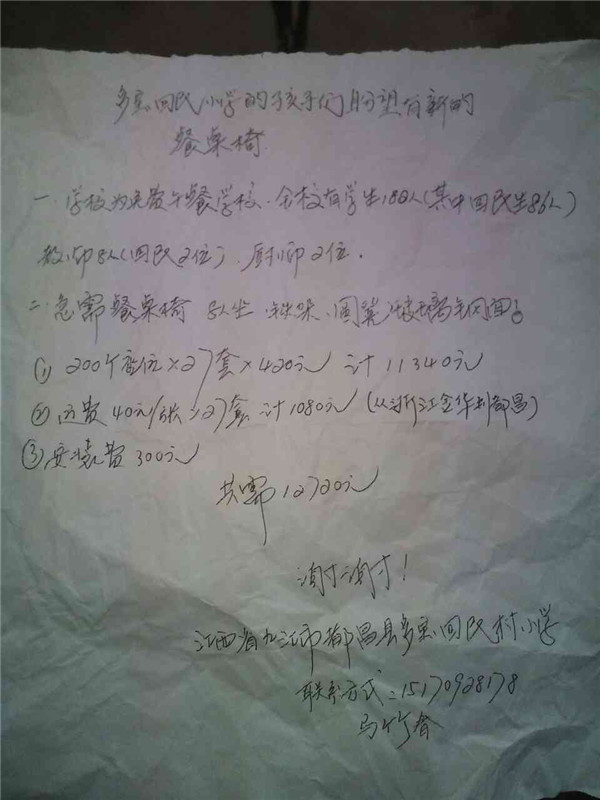 多宝回民小学的孩子们盼望有新的
餐桌椅
一、学校为免费午餐学校、全校有学生188人(其中回民生86人)
教师8人(回民2位)、厨师2位.
二、急需餐桌椅 8人坐、铁架、圆凳、玻璃钢面。
① 200个座位×27套×420元 计11340元
② 运费 40元/张×27套 计1080元 (从浙江金华到都昌)
③ 安装费 300元
共需12720元
谢谢!
江西省九江市都昌县多宝回民村小学
联系方式:15170928178
马竹香